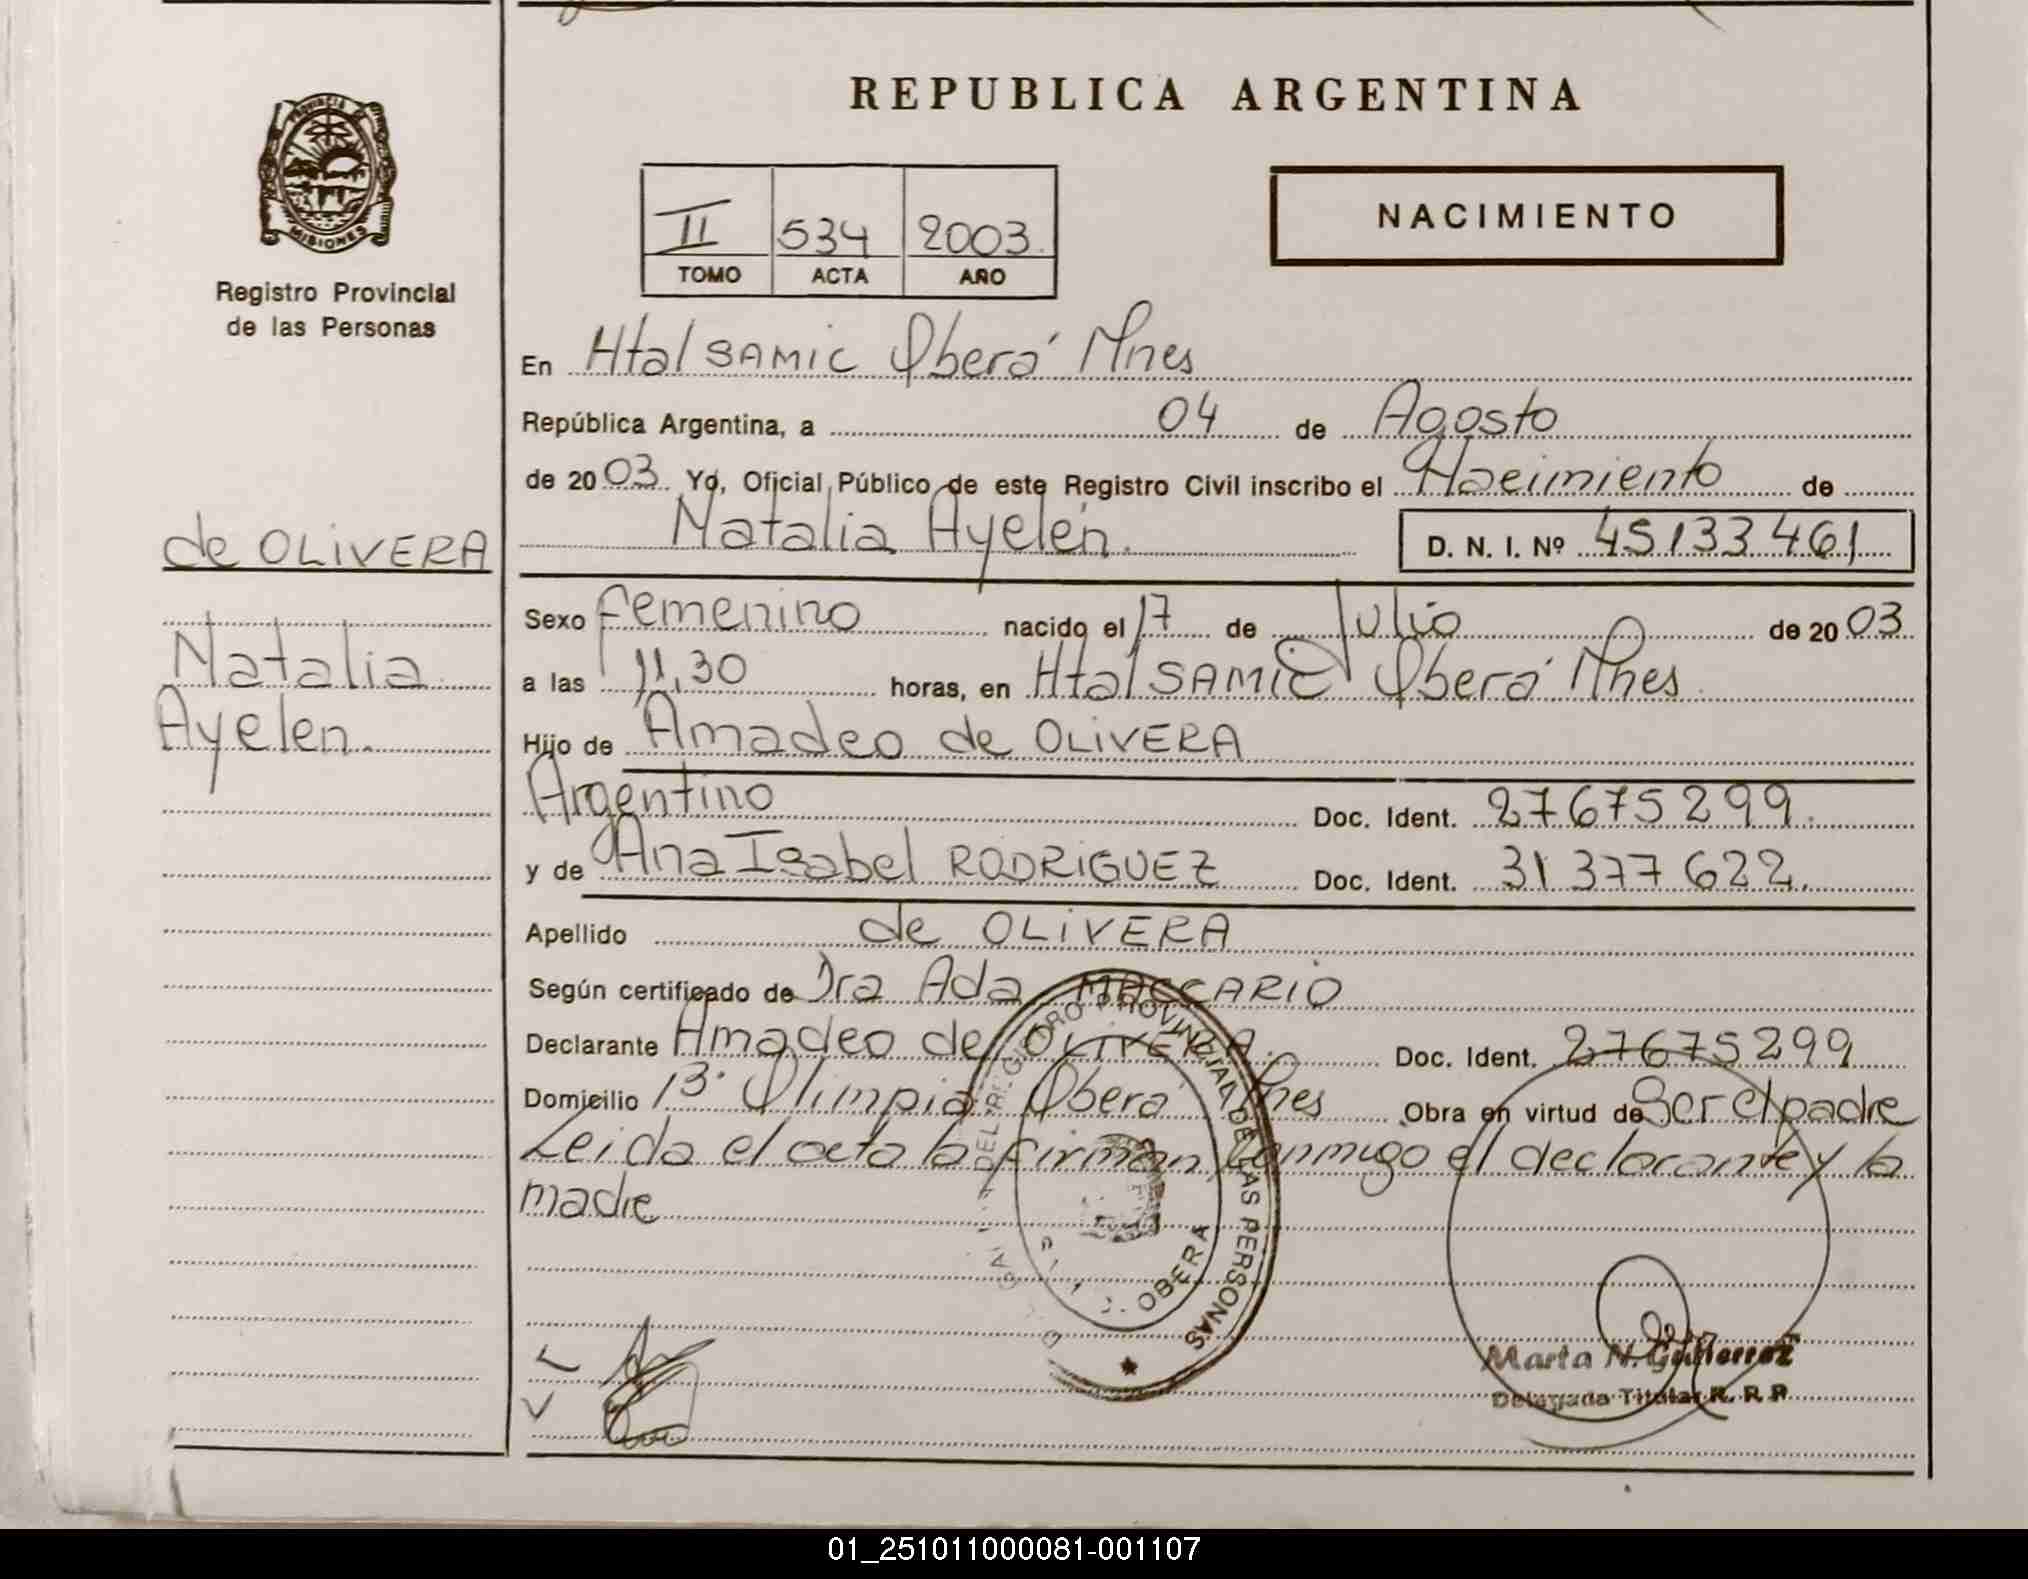 REPUBLICA ARGENTINA
PROVINCIA
MISIONES
Registro Provincial
de las Personas
II 534 2003
TOMO ACTA AÑO
NACIMIENTO
En Htal SAMIC Oberá Mnes
República Argentina, a 04 de Agosto
de 2003 Yo, Oficial Público de este Registro Civil inscribo el Nacimiento de
Natalia Ayelén. D. N. I. Nº 45133461
de OLIVERA
Natalia
Ayelen.
Sexo femenino nacido el 17 de Julio de 2003
a las 11,30 horas, en Htal SAMIC Oberá Mnes
Hijo de Amadeo de OLIVERA
Argentino Doc. Ident. 27675299.
y de Ana Isabel RODRIGUEZ Doc. Ident. 31377622.
Apellido de OLIVERA
Según certificado de Dra Ada MACCARIO
Declarante Amadeo de OLIVERA. Doc. Ident. 27675299
Domicilio 13° Olimpia Oberá Mnes Obra en virtud de Ser el padre
Leida el acta la firman conmigo el declarante y la
madre
DEL REGISTRO PROVINCIAL DE LAS PERSONAS
OBERA
Marta N. Gutierrez
Delegada Titular R. R. P.
01_251011000081-001107